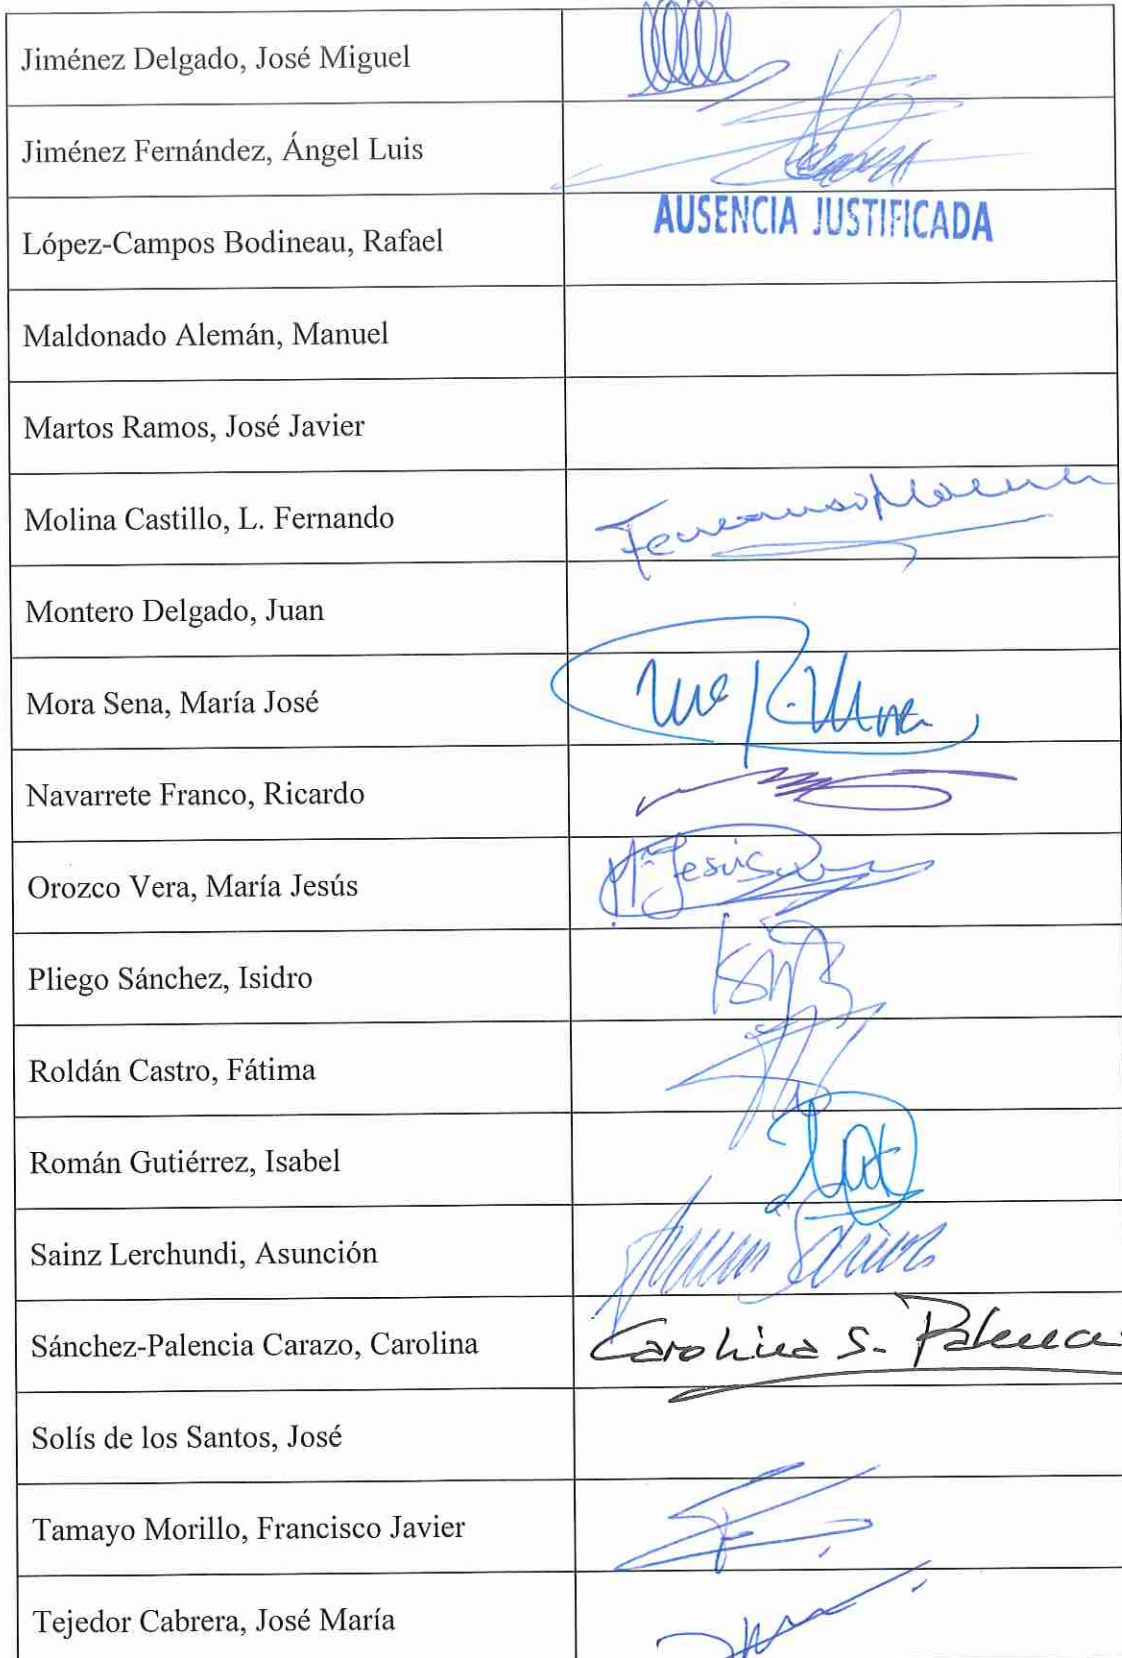 Jiménez Delgado, José Miguel
Jiménez Fernández, Ángel Luis
López-Campos Bodineau, Rafael
AUSENCIA JUSTIFICADA
Maldonado Alemán, Manuel
Martos Ramos, José Javier
Molina Castillo, L. Fernando
Montero Delgado, Juan
Mora Sena, María José
Navarrete Franco, Ricardo
Orozco Vera, María Jesús
Mª Jesús
Pliego Sánchez, Isidro
Roldán Castro, Fátima
Román Gutiérrez, Isabel
Sainz Lerchundi, Asunción
Sánchez-Palencia Carazo, Carolina
Carolina S. Palencia
Solís de los Santos, José
Tamayo Morillo, Francisco Javier
Tejedor Cabrera, José María